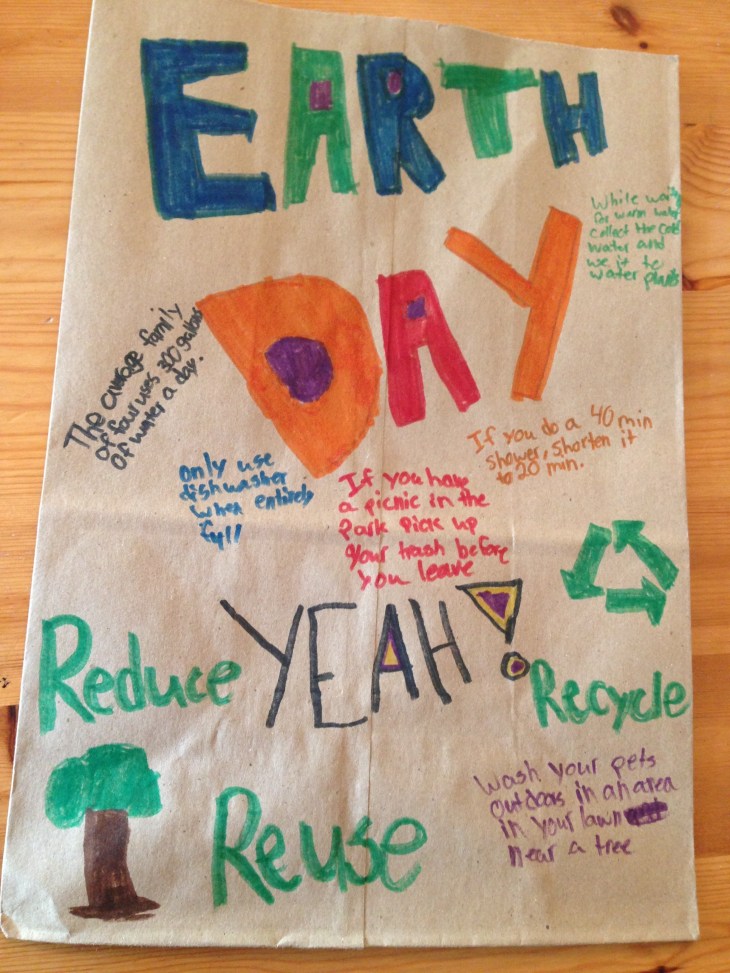 EARTH
DAY
While
for warm water
collect the cold
water and
use it to
water plants
The average family
of four uses 300 gallons
of water a day.
only use
dishwasher
when entirely
full
If you have
a picnic in the
Park pick up
your trash before
you leave
If you do a 40 min
shower, shorten it
to 20 min.
Reduce
YEAH!
Recycle
Reuse
Wash your pets
outdoors in an area
in your lawn
near a tree